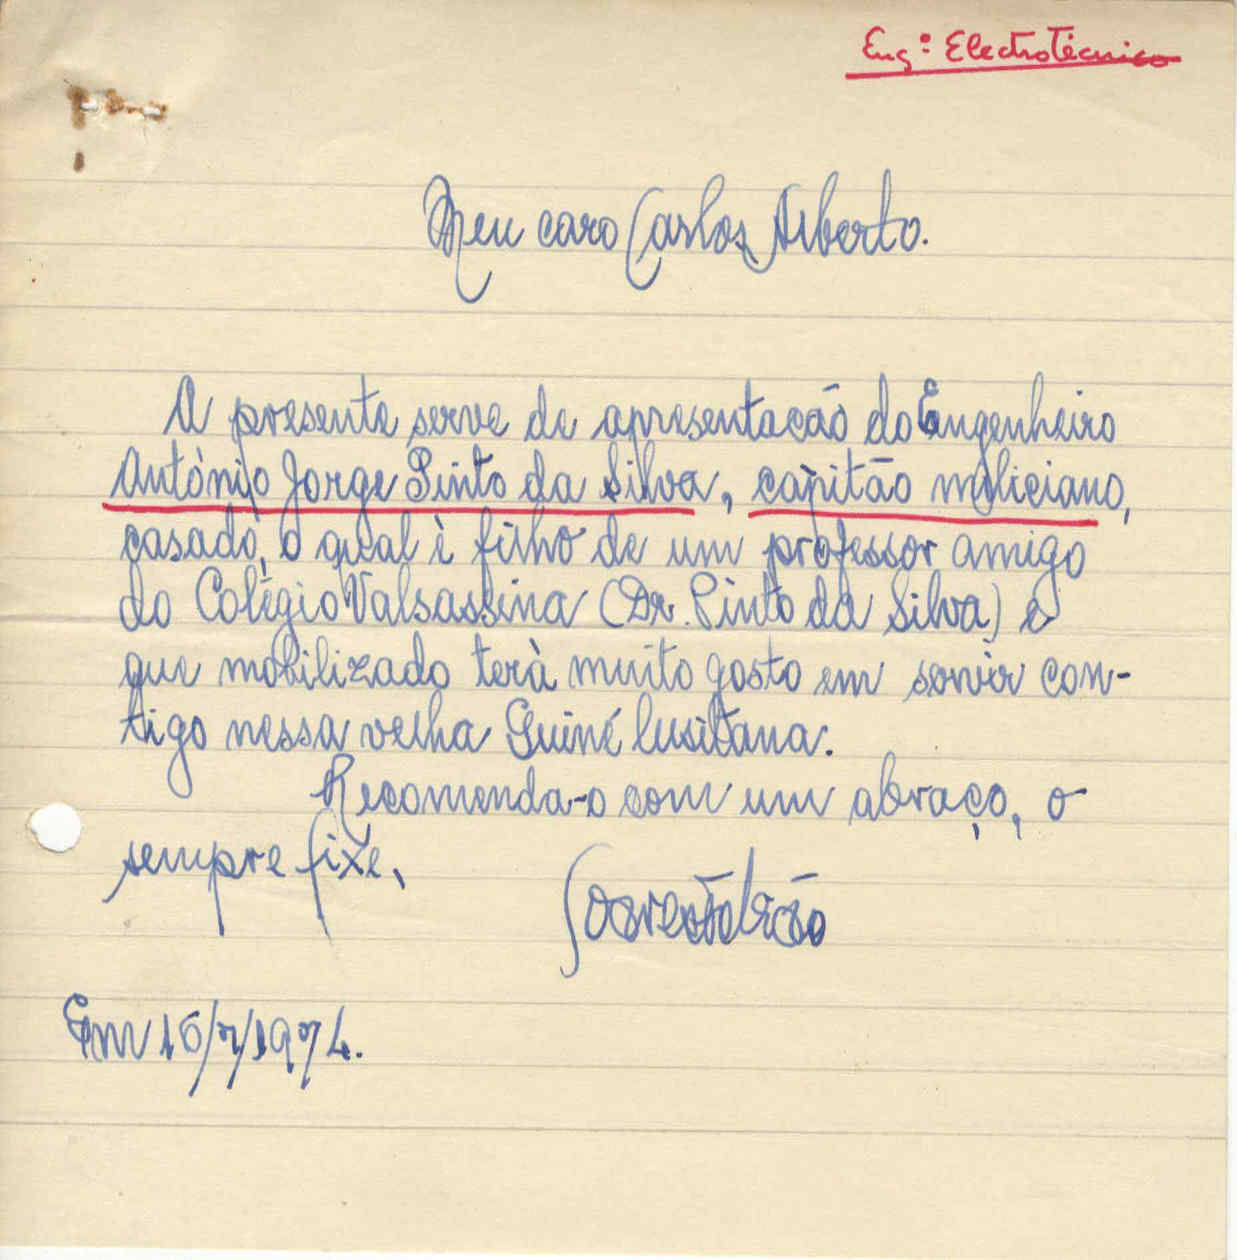 Eng.º Electrotécnico
Meu caro Carlos Alberto.
A presente serve de apresentação do Engenheiro
António Jorge Pinto da Silva, capitão miliciano,
casado, o qual è filho de um professor amigo
do Colégio Valsassina (Dr. Pinto da Silva) e
que mobilizado terà muito gosto em servir con-
tigo nessa velha Guiné lusitana.
Recomenda-o com um abraço, o
sempre fixe,
Em 16/7/1974.